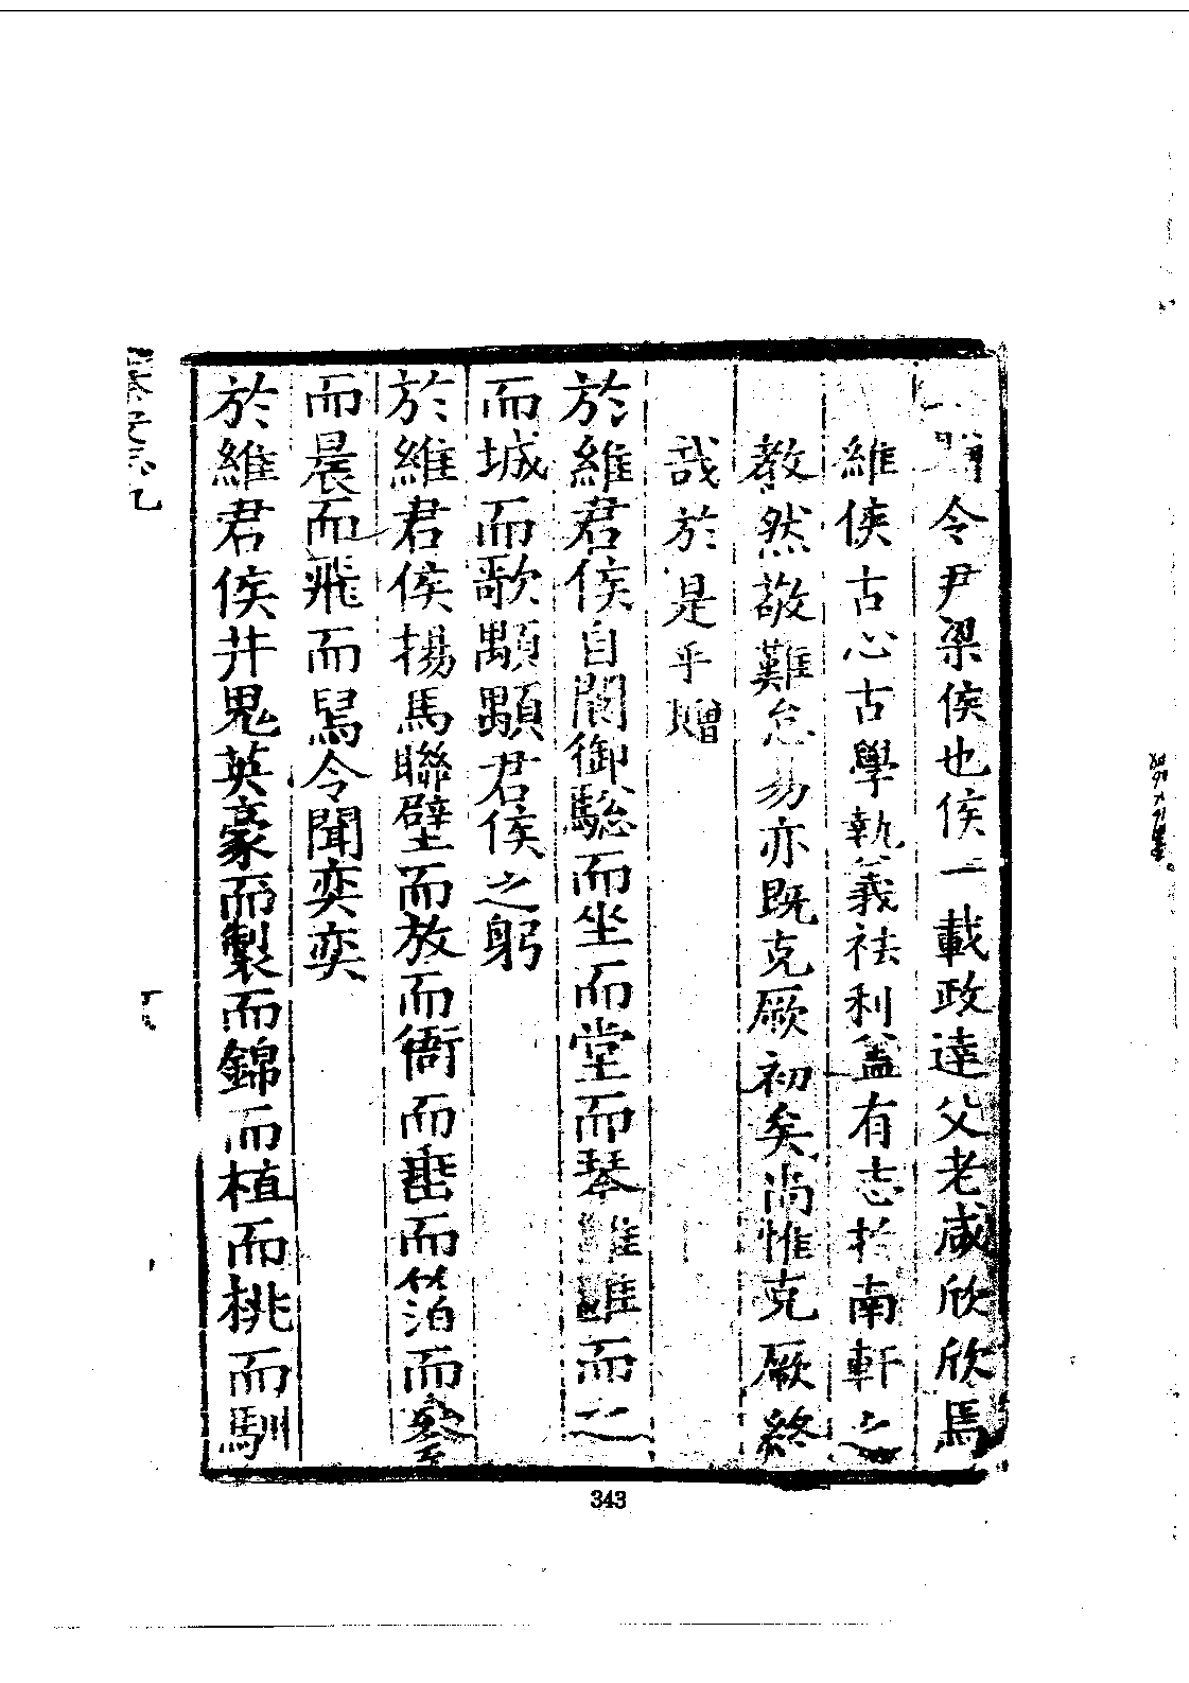 令尹梁侯也侯一載政達父老咸欣欣焉
維侯古心古學執義祛利蓋有志於南軒之
教然敬難怠易亦既克厥初矣尚惟克厥終
哉於是乎贈
於維君侯自閣御驄而坐而堂而琴雖雖而之
而城而歌顒顒君侯之躬
於維君侯揚馬聯壁而放而衙而而箔而
而晨而飛而舄令聞奕奕
於維君侯井鬼英豪而製而錦而植而桃而馴
343